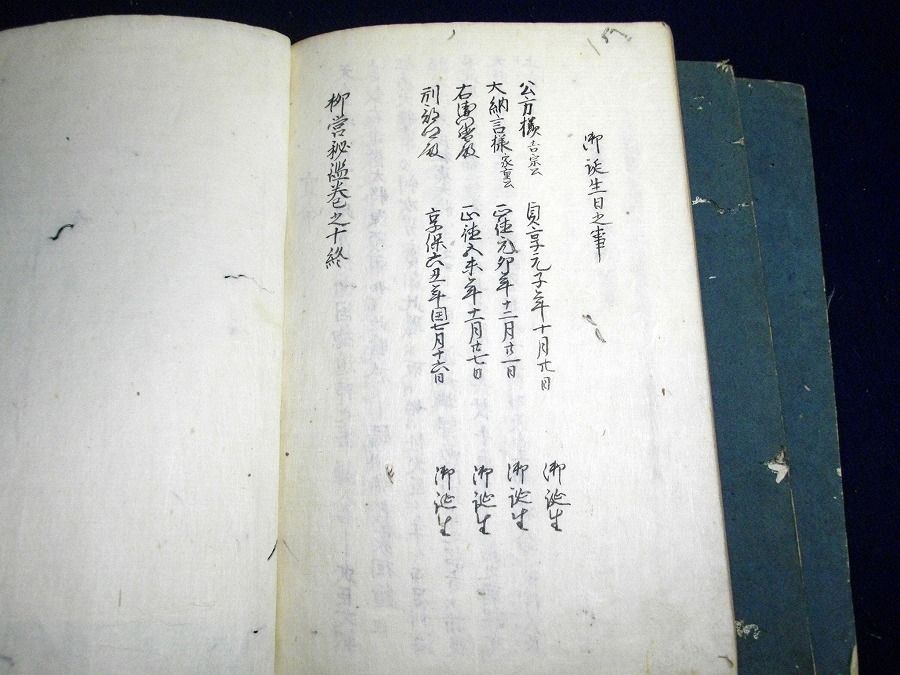 御誕生日之事
公方様吉宗公 貞享元子年十月廿日 御誕生
大納言様家重公 正徳元卯年十二月廿一日 御誕生
右衛門督殿 正徳五未年十一月廿七日 御誕生
刑部卿殿 享保六丑年閏七月十六日 御誕生
柳営秘鑑巻之十終